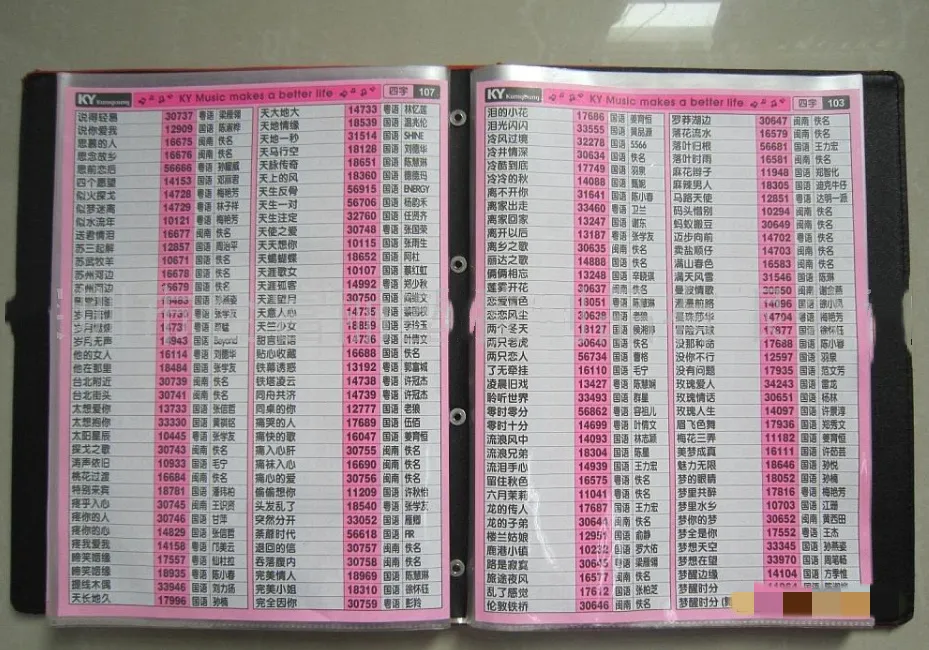 KY Kungyoung
KY Music makes a better life
四字 107
说得轻易 30737 粤语 梁雁翎
说你爱我 12909 国语 陈淑桦
思慕的人 16675 闽南 佚名
思念故乡 16676 闽南 佚名
思前恋后 56666 粤语 孙耀威
四个愿望 14153 国语 邓丽君
似火探戈 14728 粤语 梅艳芳
似梦迷离 14729 粤语 林子祥
似水流年 10121 粤语 梅艳芳
送君情泪 16677 闽南 佚名
苏三起解 12857 国语 周治平
苏武牧羊 10671 国语 佚名
苏州河边 16678 国语 佚名
苏州河边 26679 国语 佚名
国语 孙燕姿
岁月 粤语 张学友
岁月 14731 粤语
岁月无声 14943 国语 Beyond
他的女人 16114 粤语 刘德华
他在那里 18484 国语 张学友
台北附近 30739 闽南 佚名
台北街头 30741 闽南 佚名
太想爱你 13733 国语 张信哲
太想抱你 33330 国语 黄磊
太阳星辰 10445 粤语 张学友
探戈之歌 30743 闽南 佚名
涛声依旧 10933 国语 毛宁
桃花过渡 16684 闽南 佚名
特别来宾 18781 国语 潘玮柏
疼乎入心 30745 闽南 王识贤
疼你的人 30746 国语 甘萍
疼你的心 14829 国语 张信哲
疼我爱我 14158 粤语 邝美云
啼笑姻缘 17557 粤语 仙杜拉
啼笑姻缘 18935 粤语 陈小春
提线木偶 33946 国语 刘力扬
天长地久 17996 国语 孙楠
天大地大 14733 粤语 林忆莲
天地情缘 18539 国语 温兆伦
天地一秒 31514 国语 SHINE
天马行空 18128 国语 刘德华
天脉传奇 18651 国语 陈慧琳
天上的风 18360 国语 德德玛
天生反骨 56915 国语 ENERGY
天生一对 56706 国语 杨韵禾
天生注定 32760 国语 任贤齐
天使之爱 30748 粤语 张国荣
天天想你 10115 国语 张雨生
天蝎蝴蝶 18652 国语 阿杜
天涯歌女 10107 国语 蔡红虹
天涯孤客 14992 粤语 郑少秋
天涯望月 30750 国语 阎维文
天意人心 14735 粤语
天竺少女 18859 国语 李玲玉
甜言蜜语 14736 粤语 叶倩文
贴心收藏 16688 国语 佚名
铁幕诱惑 13192 国语 郭富城
铁塔凌云 14738 粤语 许冠杰
同舟共济 14739 粤语 许冠杰
同桌的你 12777 国语 老狼
痛哭的人 17689 国语 伍佰
痛快的歌 16047 国语 姜育恒
痛入心肝 30755 闽南 佚名
痛袂入心 16690 闽南 佚名
痛心的爱 30756 闽南 佚名
偷偷想你 11209 国语 许秋怡
头发乱了 18540 粤语 张学友
突然分开 33052 国语 雁卿
荼蘼时代 56618 国语 HR
退回的信 30757 闽南 佚名
吞落腹内 30758 闽南 佚名
完美情人 18969 国语 陈慧琳
完美小姐 18310 国语 徐怀钰
完全因你 30759 粤语 彭羚
KY Kungyoung
KY Music makes a better life
四字 103
泪的小花 17686 国语 姜育恒
泪光闪闪 33555 国语 黄品源
冷风过境 32278 国语 5566
冷井情深 30634 国语 佚名
冷酷到底 17749 国语 羽泉
冷冷的秋 14088 国语 甄妮
离不开你 31641 国语 陈小春
离家出走 33460 粤语 卫兰
离家回家 13247 国语 谢东
离开以后 13187 粤语 张学友
离乡之歌 30635 闽南 佚名
丽达之歌 14888 国语 佚名
俩俩相忘 13248 国语 辛晓琪
莲雾开花 30637 闽南 佚名
恋爱情色 18051 粤语 陈慧琳
恋恋风尘 30638 国语 老狼
两个冬天 18127 国语 侯湘婷
两只老虎 30640 国语 佚名
两只恋人 56734 国语 曹格
了无牵挂 16110 国语 毛宁
凌晨旧戏 13427 粤语 陈慧娴
聆听世界 33493 国语 群星
零时零分 56862 粤语 容祖儿
零时十分 14699 粤语 叶倩文
流浪风中 14093 国语 林志颖
流浪兄弟 18304 国语 陈星
流泪手心 14939 国语 王力宏
留住秋色 16575 粤语 佚名
六月茉莉 11041 粤语 佚名
龙的传人 17687 国语 王力宏
龙的子弟 30644 闽南 佚名
楼兰姑娘 12951 国语 俞静
鹿港小镇 10232 国语 罗大佑
路是寂寞 30645 粤语 梁雁翎
旅途夜风 16577 闽南 佚名
乱了感觉 17612 国语 张柏芝
伦敦铁桥 30646 闽南 佚名
罗莽湖边 30647 闽南 佚名
落花流水 16579 闽南 佚名
落叶归根 56681 国语 王力宏
落叶时雨 16581 闽南 佚名
麻花辫子 11948 国语 郑智化
麻辣男人 18305 国语 迪克牛仔
马路天使 12851 粤语 达明一派
码头惜别 10294 闽南 佚名
蚂蚁搬豆 30649 闽南 佚名
迈步向前 14702 粤语 佚名
卖盐顺仔 14703 闽南 佚名
满山春色 16583 闽南 佚名
满天风雪 31546 国语 陈琳
曼波情歌 30650 闽南 谢金燕
14096 国语 徐小凤
14794 粤语 梅艳芳
冒险汽球 17877 国语 徐怀钰
没那种命 17688 国语 陈小春
没你不行 12597 国语 羽泉
没有问题 17935 国语 范文芳
玫瑰爱人 34243 国语 雷龙
玫瑰情话 30651 国语 杨林
玫瑰人生 14097 国语 许景淳
眉飞色舞 17936 国语 郑秀文
梅花三弄 11182 国语 姜育恒
美梦成真 16111 国语 许茹芸
魅力无限 18646 国语 孙悦
梦的眼睛 18052 国语 孙楠
梦里共醉 17816 粤语 梅艳芳
梦里水乡 10703 国语 江珊
梦你的梦 30652 闽南 黄西田
梦全是你 17552 粤语 王杰
梦想天空 33345 国语 孙燕姿
梦想在望 33970 国语 周笔畅
梦醒边缘 14104 国语 方季惟
梦醒时分
梦醒时分